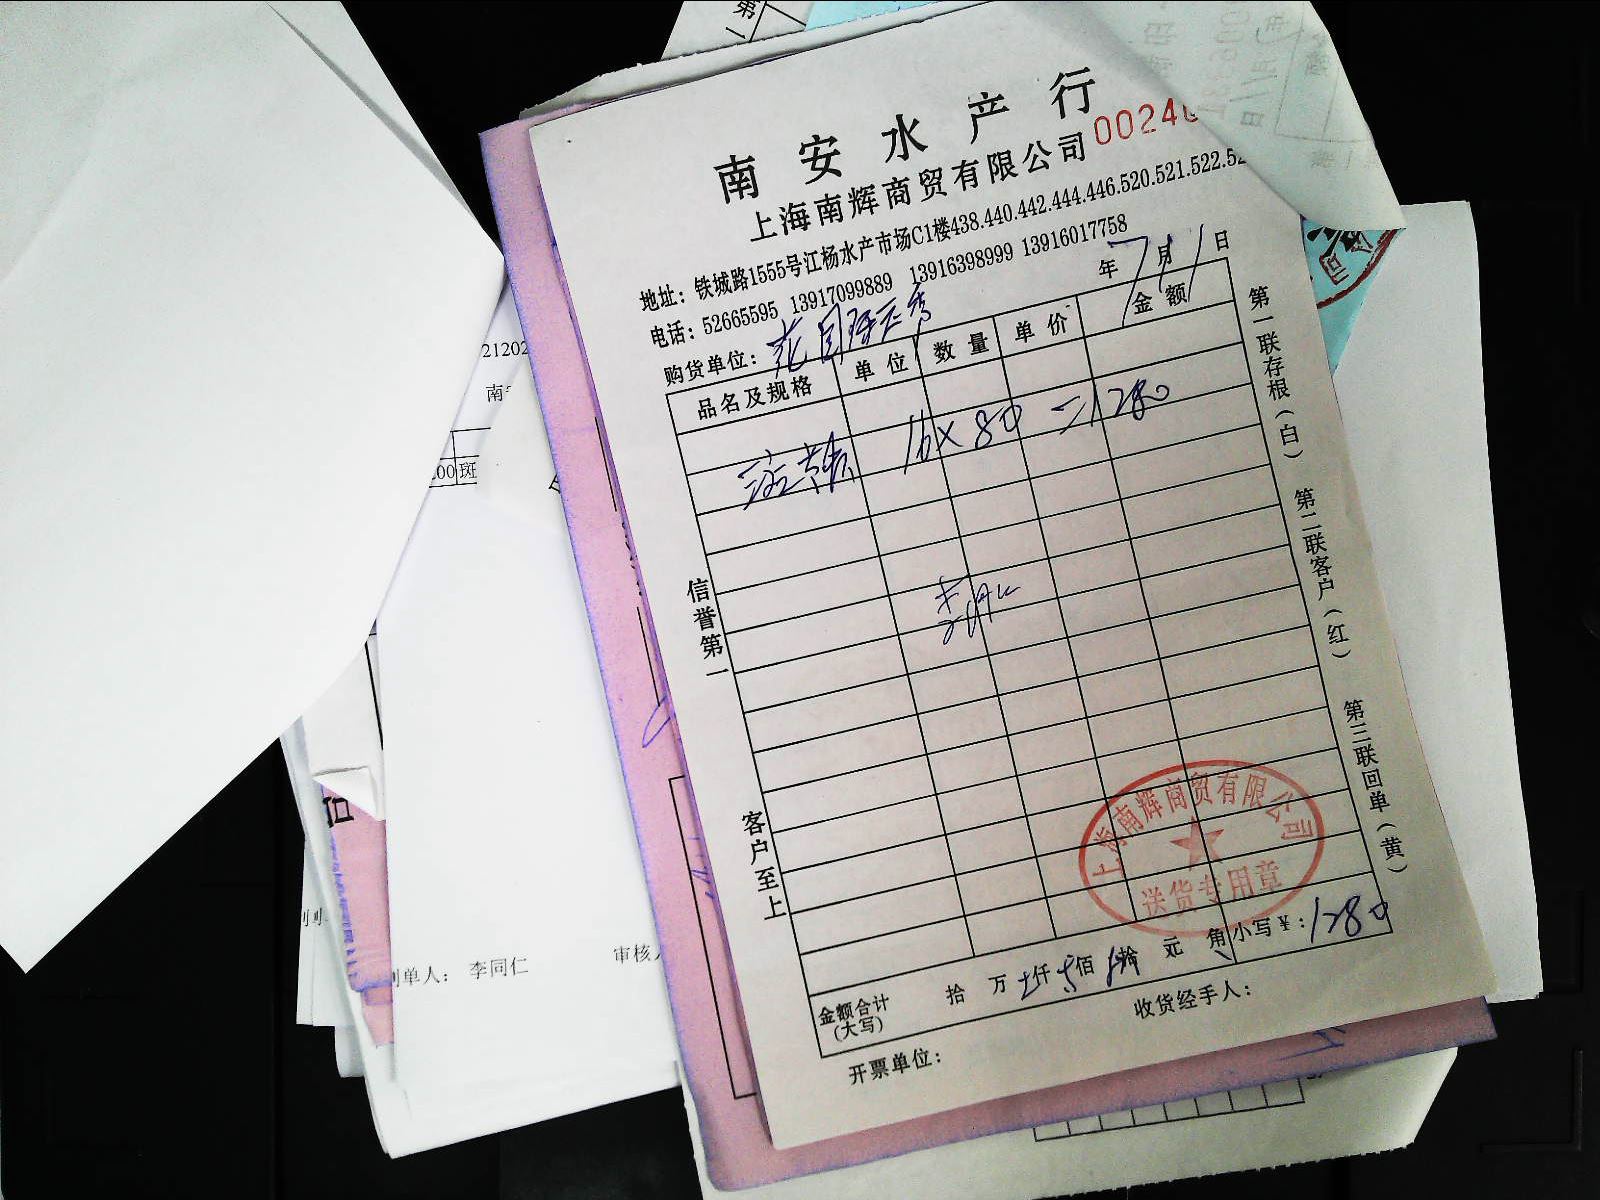 南安水产行
上海南辉商贸有限公司 0024
地址：铁城路1555号江杨水产市场C1楼438.440.442.444.446.520.521.522.52
电话：52665595 13917099889 13916398999 13916017758
购货单位：花园 年7月1日
品名及规格 单位 数量 单价 金额
16×80 =1280
信誉第一
客户至上
第一联存根（白）
第二联客户（红）
第三联回单（黄）
上海南辉商贸有限公司
送货专用章
金额合计（大写） 拾 万 仟 佰 拾 元 角 小写￥：1280
开票单位：
收货经手人：
21202
南
00 斑
制单人： 李同仁
审核
第一